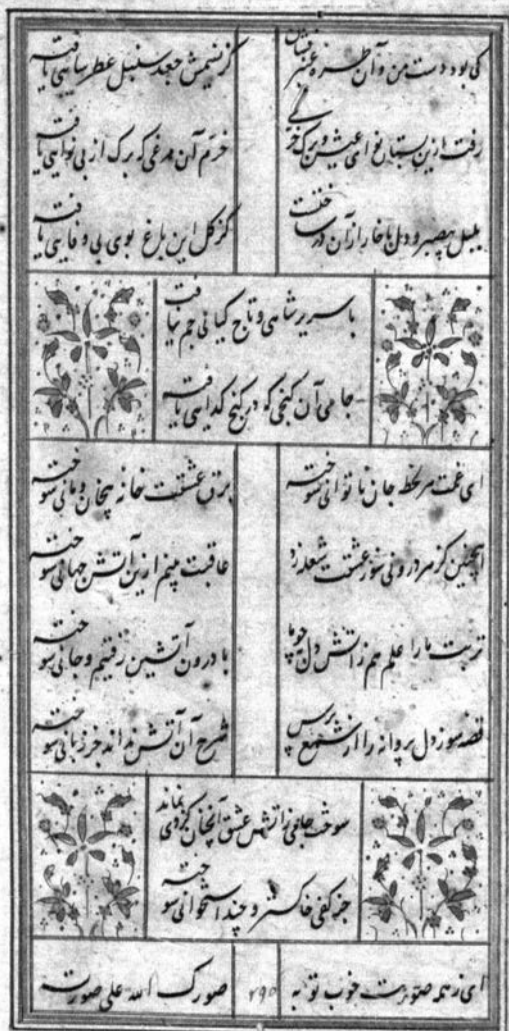 کی بود دست من و آن طره عنبرفشان
کز نسیمش جعد سنبل عطرسایی یافته
رفت ازین بستان نوای عیش و برگ خرمی
خرم آن مرغی که برگ از بی نوایی یافته
بلبل بیصبر و دل با خار از آن در ساخت
کز گل این باغ بوی بی وفایی یافته
با سریر شاهی و تاج کیانی جم نیافت
جامی آن گنجی که در کنج گدایی یافته
ای غمت هر لحظه جان ناتوانی سوخته
برق عشقت خانه بی خان و مانی سوخته
اینچنین کز هر درونی سوز عشقت شعله زد
عاقبت بینم ازین آتش جهانی سوخته
تربت ما را علم هم ز آتش دل چو ما
با درون آتشین رفتیم و جانی سوخته
قصه سوز دل پروانه را از شمع پرس
شرح آن آتش نداند جز زبانی سوخته
سوخت جامی ز آتش عشق آنچنان کز وی نماند
جز کفی خاکستر و چند استخوانی سوخته
ای ز همه صورت خوب تو به
صورک الله علی صورته